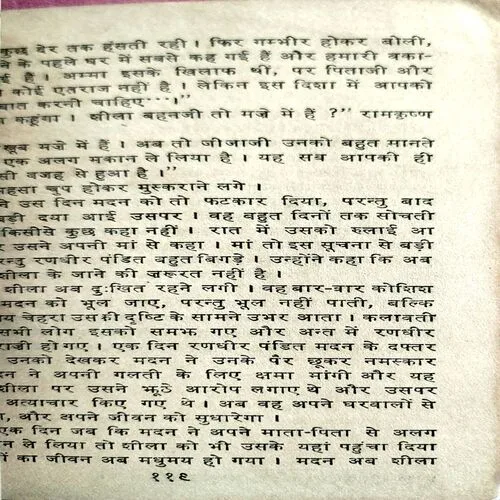 कुछ देर तक हंसती रही । फिर गम्भीर होकर बोली,
ने के पहले घर में सबसे कह गई हैं और हमारी वका-
ई हैं । अम्मा इसके खिलाफ थीं, पर पिताजी और
कोई एतराज नहीं है । लेकिन इस दिशा में आपको
बात करनी चाहिए···।"
कहूंगा । शीला बहनजी तो मजे में हैं ?" रामकृष्ण
खूब मजे में हैं । अब तो जीजाजी उनको बहुत मानते
एक अलग मकान ले लिया है । यह सब आपकी ही
सी वजह से हुआ है ।"
हसा चुप होकर मुस्कराने लगे ।
ने उस दिन मदन को तो फटकार दिया, परन्तु बाद
बड़ी दया आई उसपर । वह बहुत दिनों तक सोचती
किसीसे कुछ कहा नहीं । रात में उसको रुलाई आ
र उसने अपनी मां से कहा । मां तो इस सूचना से बड़ी
न्तु रणधीर पंडित बहुत बिगड़े । उन्होंने कहा कि अब
शीला के जाने की ज़रूरत नहीं है ।
शीला अब दुःखित रहने लगी । वह बार-बार कोशिश
मदन को भूल जाए, परन्तु भूल नहीं पाती, बल्कि
य चेहरा उसकी दृष्टि के सामने उभर आता । कलावती
सभी लोग इसको समझ गए और अन्त में रणधीर
राजी हो गए । एक दिन रणधीर पंडित मदन के दफ्तर
उनको देखकर मदन ने उनके पैर छूकर नमस्कार
दन ने अपनी गलती के लिए क्षमा मांगी और यह
शीला पर उसने झूठे आरोप लगाए थे और उसपर
अत्याचार किए गए थे । अब वह अपने घरवालों से
ा, और अपने जीवन को सुधारेगा ।
एक दिन जब कि मदन ने अपने माता-पिता से अलग
न ले लिया तो शीला को भी उसके यहां पहुंचा दिया
ों का जीवन अब मधुमय हो गया । मदन अब शीला
११९